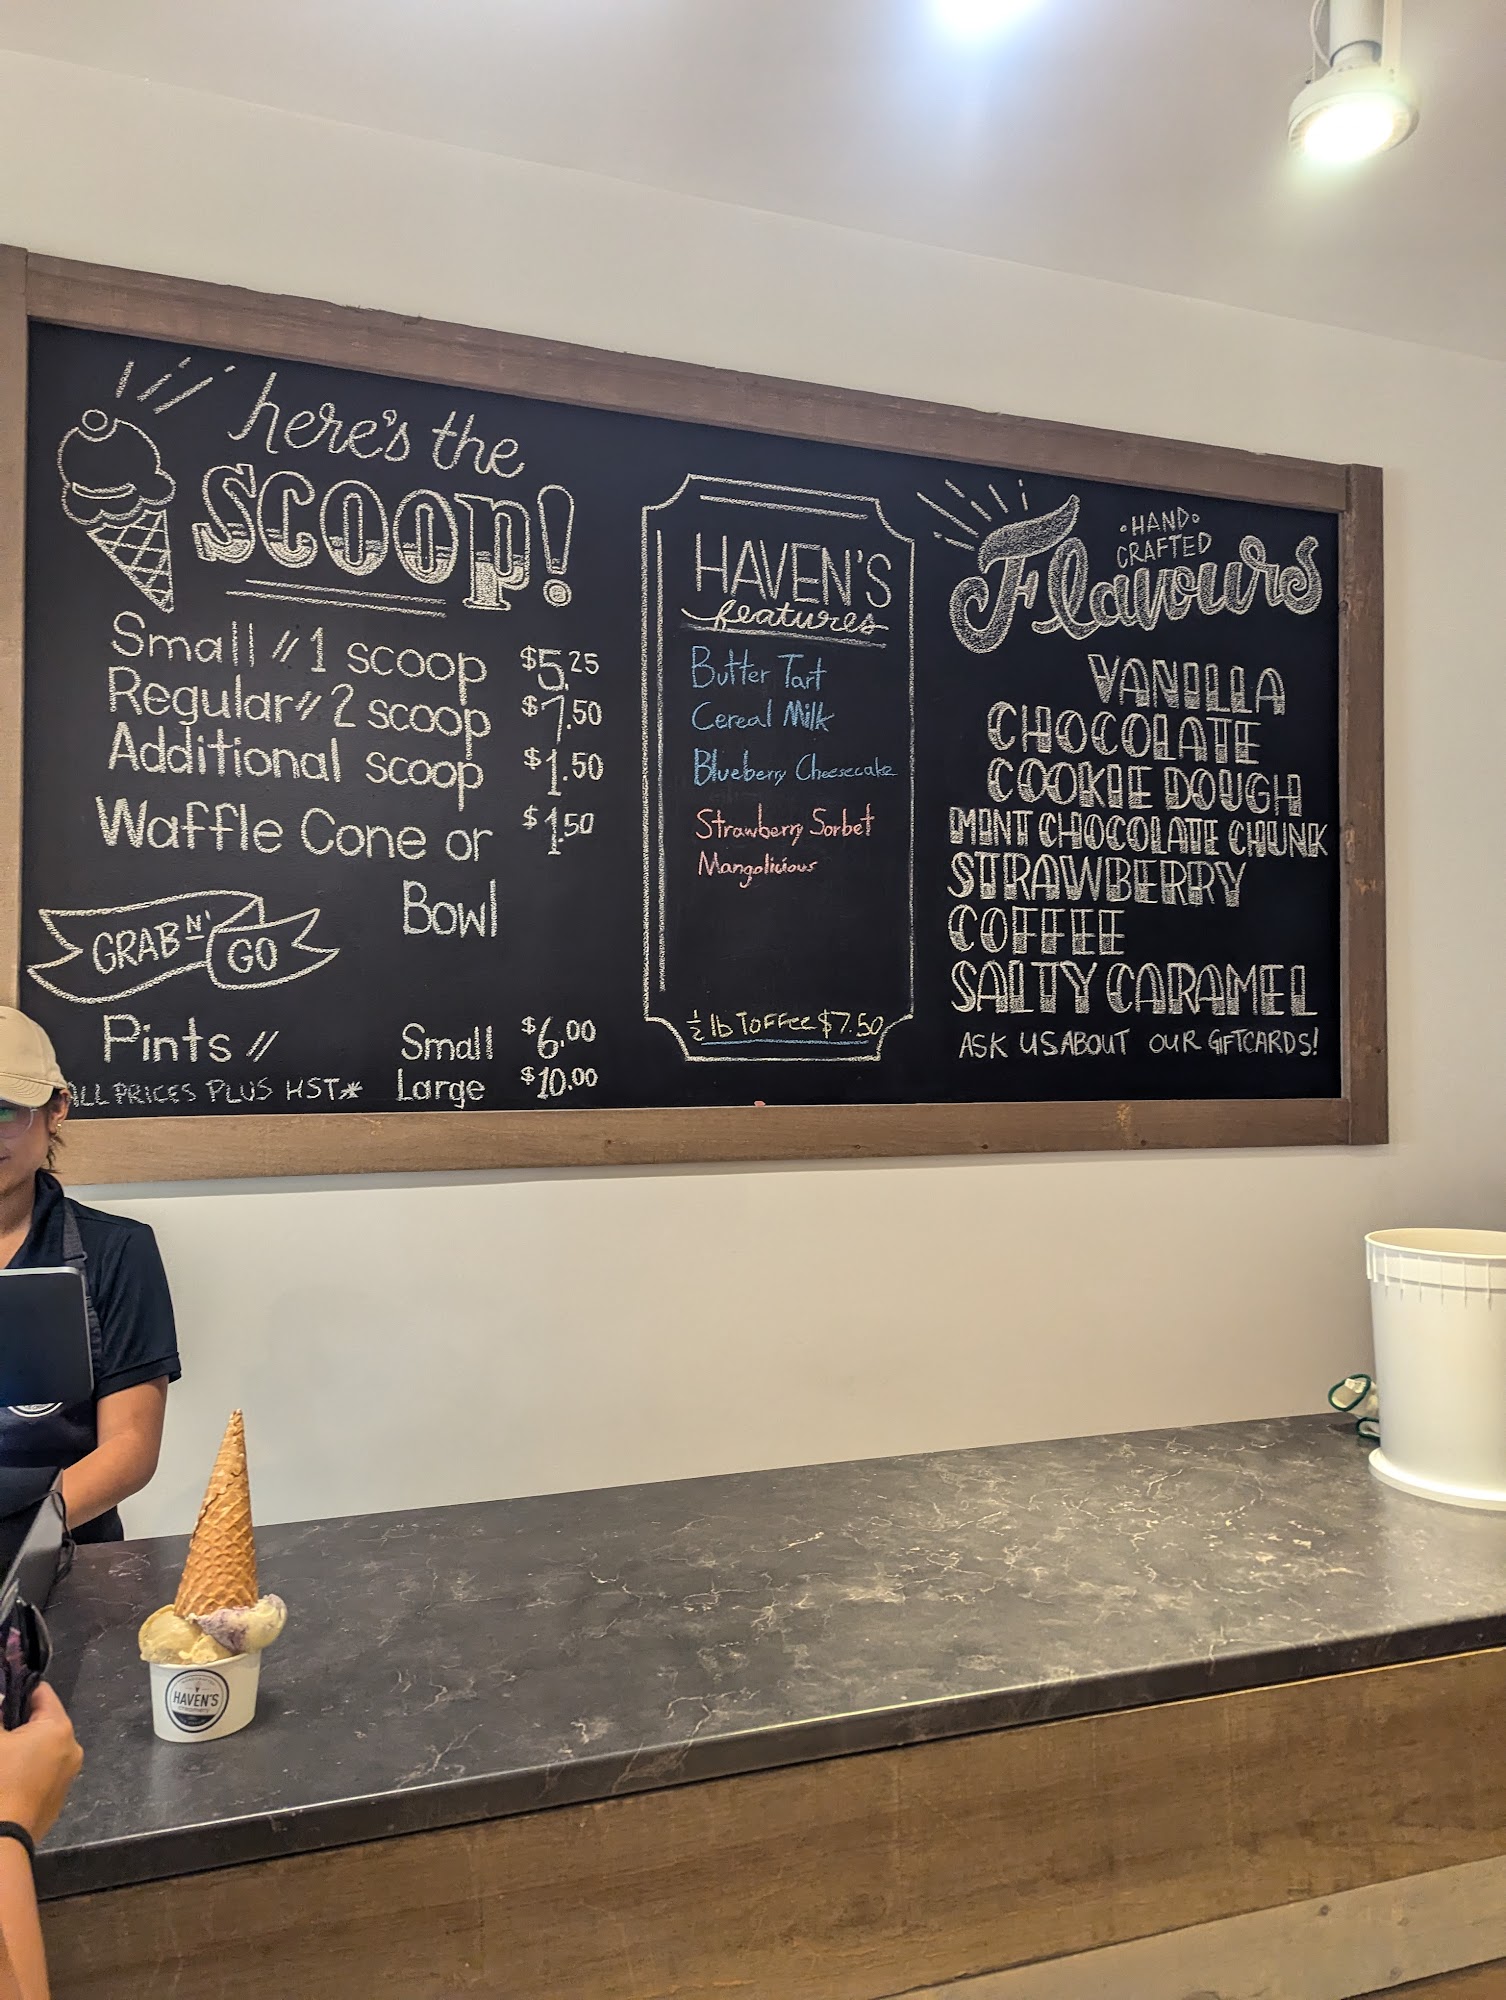 here's the
SCOOP!
Small // 1 scoop $5.25
Regular // 2 scoop $7.50
Additional scoop $1.50
Waffle Cone or $1.50
Bowl
GRAB N' GO
Pints // Small $6.00
ALL PRICES PLUS HST* Large $10.00
HAVEN'S
features
Butter Tart
Cereal Milk
Blueberry Cheesecake
Strawberry Sorbet
Mangolicious
½ lb Toffee $7.50
HAND
CRAFTED
Flavours
VANILLA
CHOCOLATE
COOKIE DOUGH
MINT CHOCOLATE CHUNK
STRAWBERRY
COFFEE
SALTY CARAMEL
ASK US ABOUT OUR GIFTCARDS!
HAVEN'S